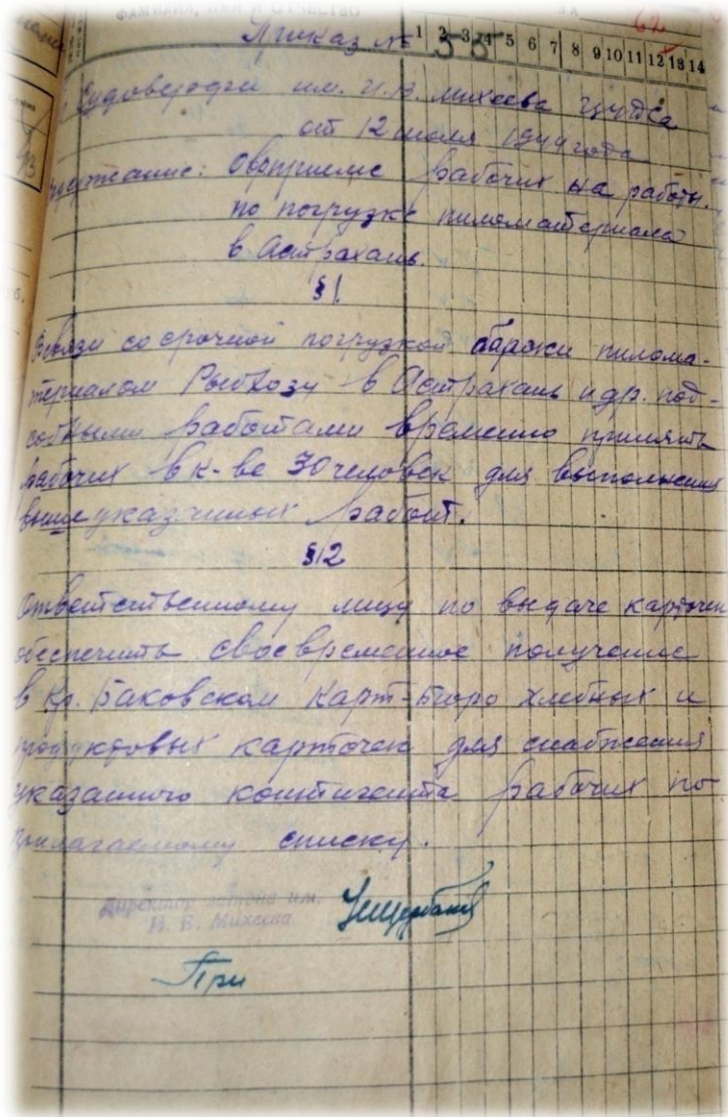 ФАМИЛИЯ, ИМЯ И ОТЧЕСТВО
62
Приказ № 55
1 2 3 4 5 6 7 8 9 10 11 12 13 14
Судоверфи им. И.В. Михеева
от 12 июля 1944 года
Содержание: О приеме рабочих на работы
по погрузке пиломатериала
в Астрахань.
§ 1.
В связи со срочной погрузкой баржи пилома-
териалом Рыбхозу в Астрахань и др. под-
собными работами временно принять
рабочих в к-ве 30 человек для выполнения
выше указанных работ.
§ 2
Ответственному лицу по выдаче карточек
обеспечить своевременное получение
в Кр. Баковском Карт-Бюро хлебных и
продуктовых карточек для снабжения
указанного контигента рабочих по
прилагаемому списку.
Директор завода им.
И. В. Михеева
При